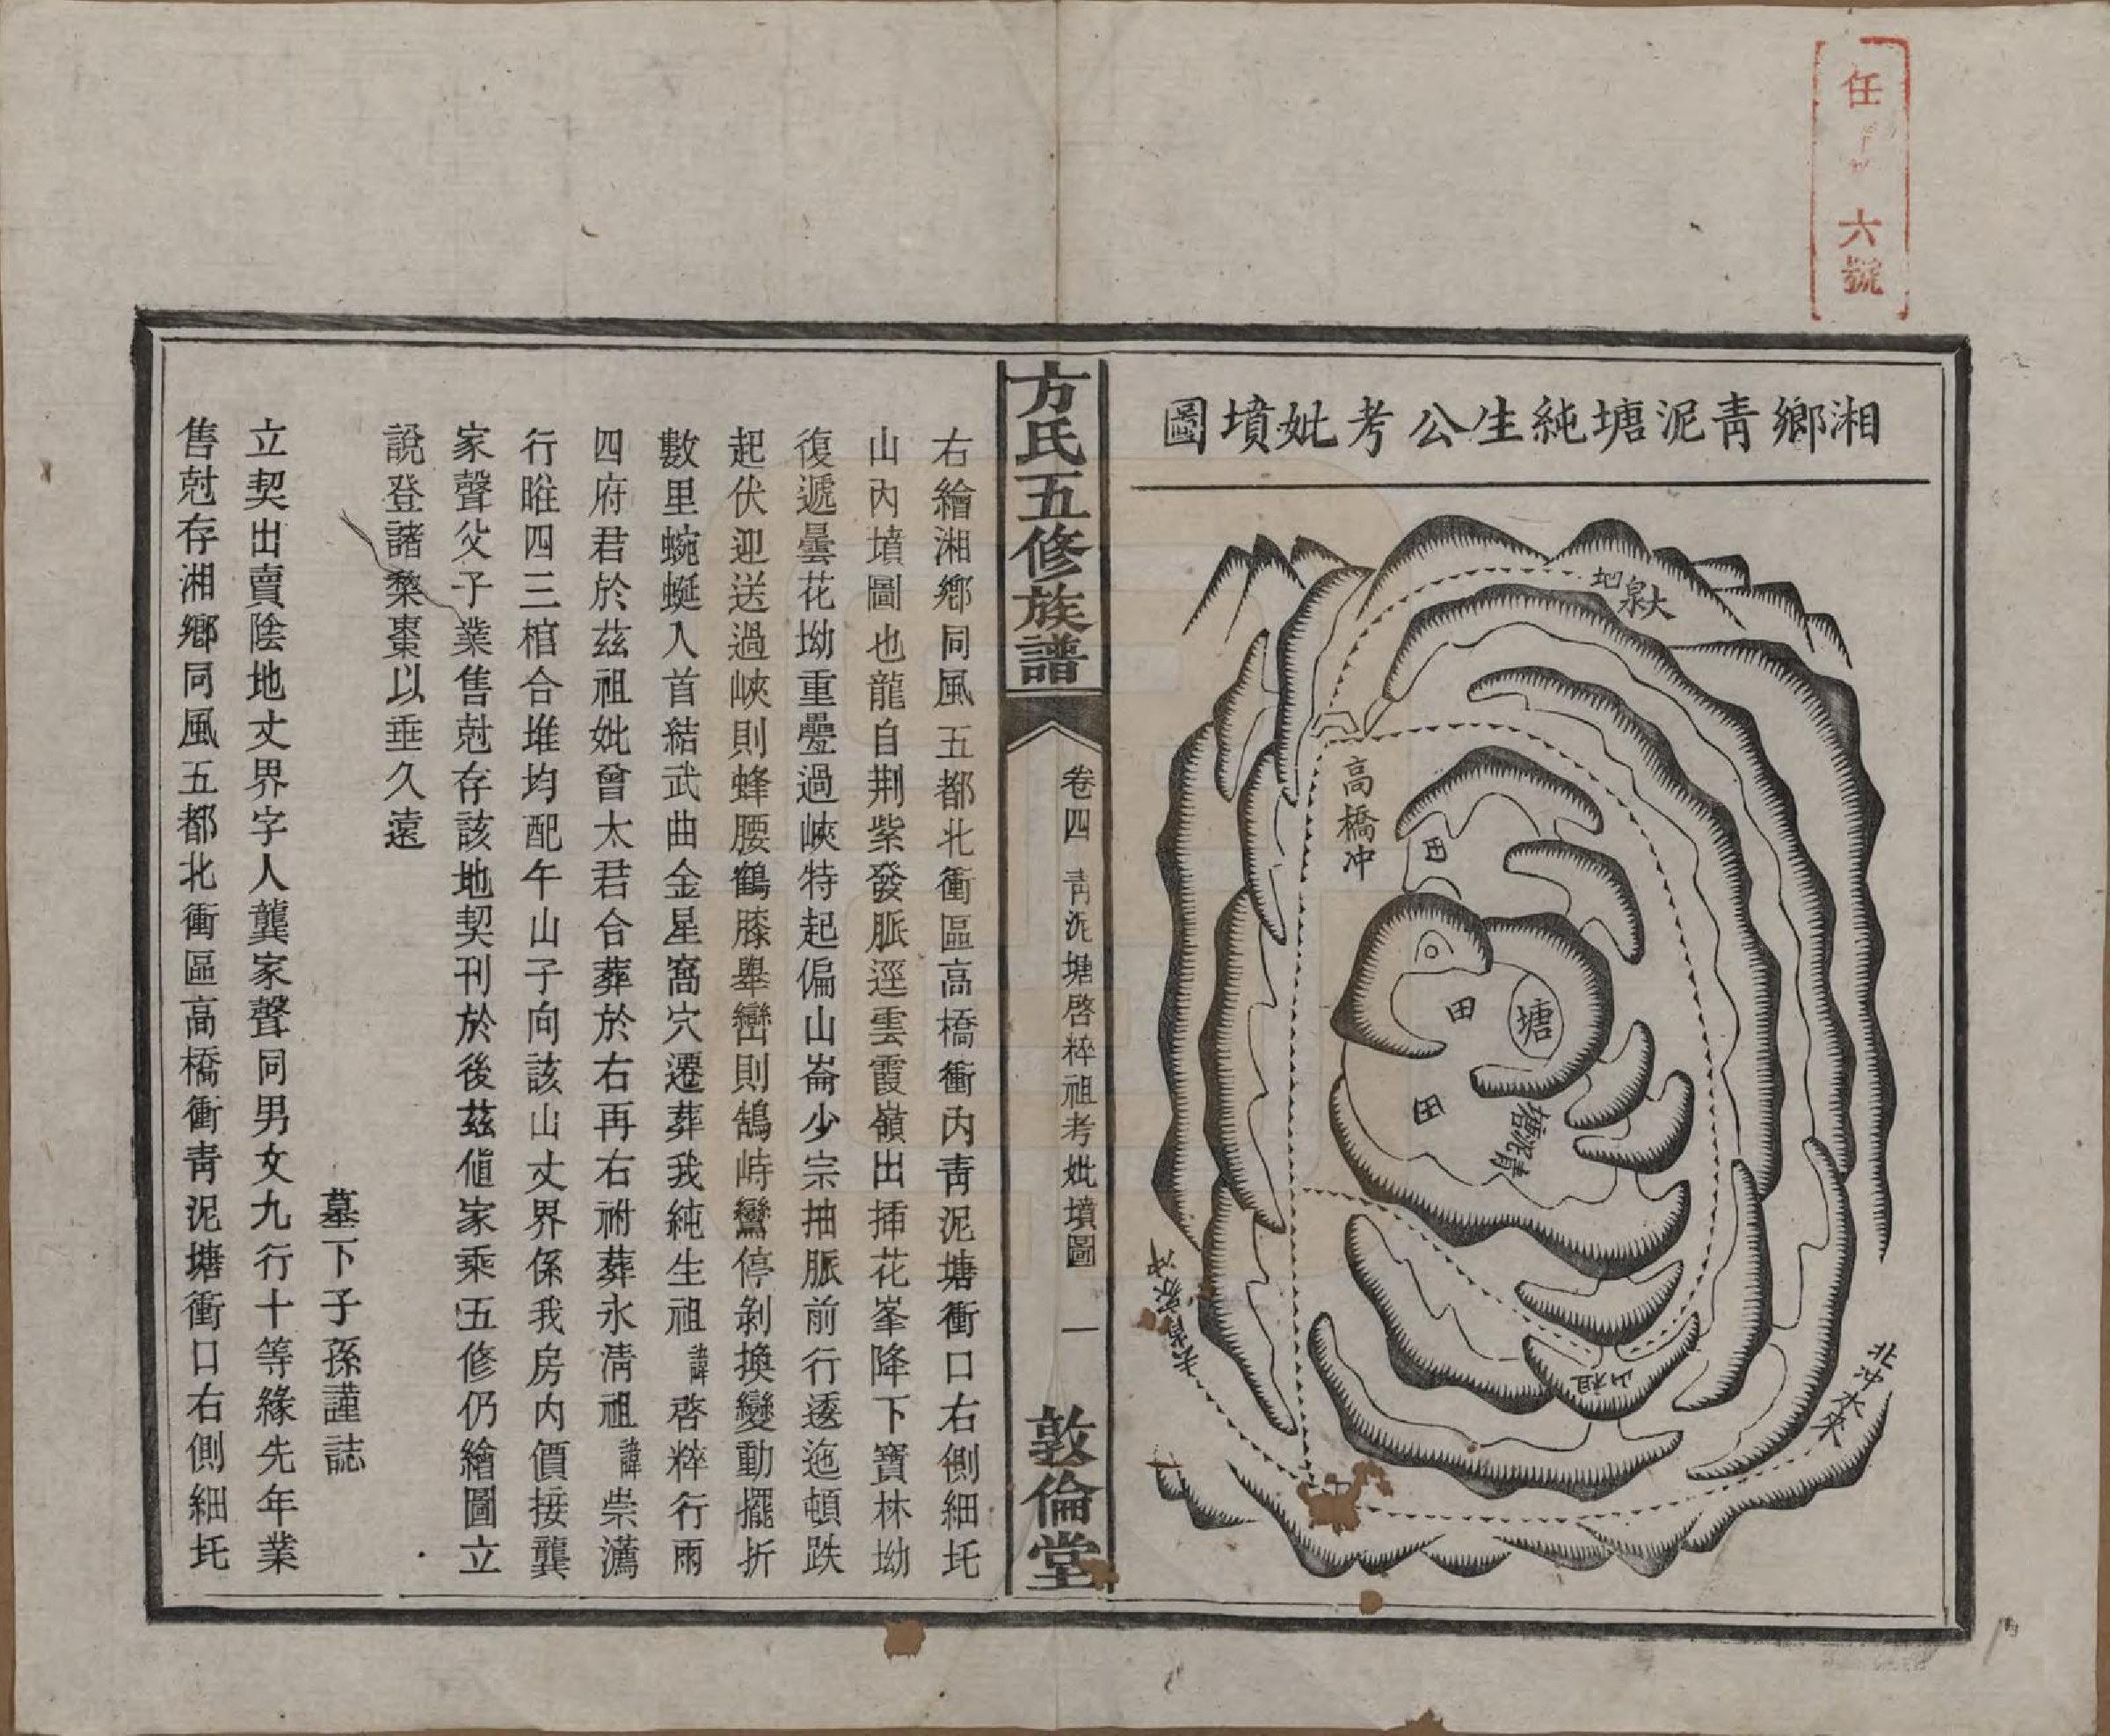 任
六號
湘鄉靑泥塘純生公考妣墳圖
大泉
地
高橋冲
田
田
塘
田
靑泥塘
祖山
北冲大夾
方氏五修族譜
卷四 靑泥塘啓粹祖考妣墳圖 一
敦倫堂
右繪湘鄉同風五都北衝區高橋衝內靑泥塘衝口右側細圫
山內墳圖也龍自荆紫發脈逕雲霞嶺出揷花峯降下寶林坳
復遞曇花坳重疊過峽特起偏山崙少宗抽脈前行逶迤頓跌
起伏迎送過峽則蜂腰鶴膝舉巒則鵠峙鸞停剝換變動擺折
數里蜿蜒入首結武曲金星窩穴遷葬我純生祖諱啓粹行雨
四府君於茲祖妣曾太君合葬於右再右祔葬永淸祖諱崇瀌
行暀四三棺合堆均配午山子向該山丈界係我房內價接龔
家聲父子業售尅存該地契刊於後茲値家乘五修仍繪圖立
說登諸棃棗以垂久遠
墓下子孫謹誌
立契出賣陰地丈界字人龔家聲同男女九行十等緣先年業
售尅存湘鄉同風五都北衝區高橋衝靑泥塘衝口右側細圫